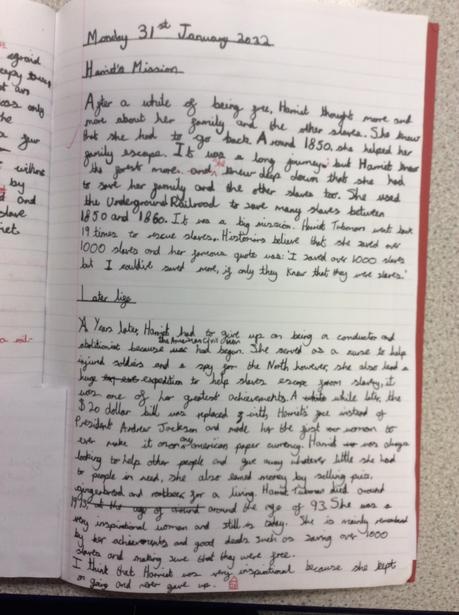 Monday 31st January 2022
Harriet's Mission
After a while of being free, Harriet thought more and
more about her family and the other slaves. She knew
that she had to go back. Around 1850, she helped her
family escape. It was a long journey but Harriet knew
the forest more and she knew deep down that she had
to save her family and the other slaves too. She used
the Underground Railroad to save many slaves between
1850 and 1860. It was a big mission. Harriet Tubman went back
19 times to rescue slaves. Historians believe that she saved over
1000 slaves and her famous quote was: 'I saved over 1000 slaves
but I could've saved more, if only they knew that they were slaves.'
Later life
A Years later, Harriet had to give up on being a conductor and
abolitionist because the American Civil War had begun. She served as a nurse to help
injured soldiers and a spy for the North however, she also lead a
huge expedition to help slaves escape from slavery, it
was one of her greatest achievements. A while later, the
$20 dollar bill was replaced with Harriet's face instead of
President Andrew Jackson and made her the first woman to
ever make it on any american paper currency. Harriet was always
looking to help other people and give away whatever little she had
to people in need, she also earned money by selling pies,
gingerbread and rootbeer for a living. Harriet Tubman died around
1913, at the age of around the age of 93. She was a
very inspirational woman and still is today. She is mainly remembered
by her achievements and good deeds such as saving over 1000
slaves and making sure that they were free.
I think that Harriet was very inspirational because she kept
on going and never gave up.